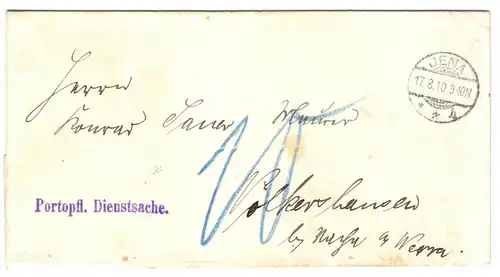 JENA
17.8.10.9-10N
* * h
Herrn
Konrad Sauer Maurer
10
Portopfl. Dienstsache.
Völkershausen
by Vacha a/ Werra.